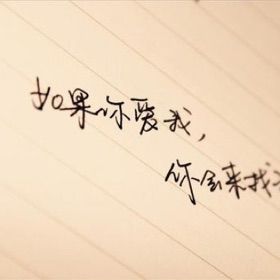 如果你爱我，
你会来找